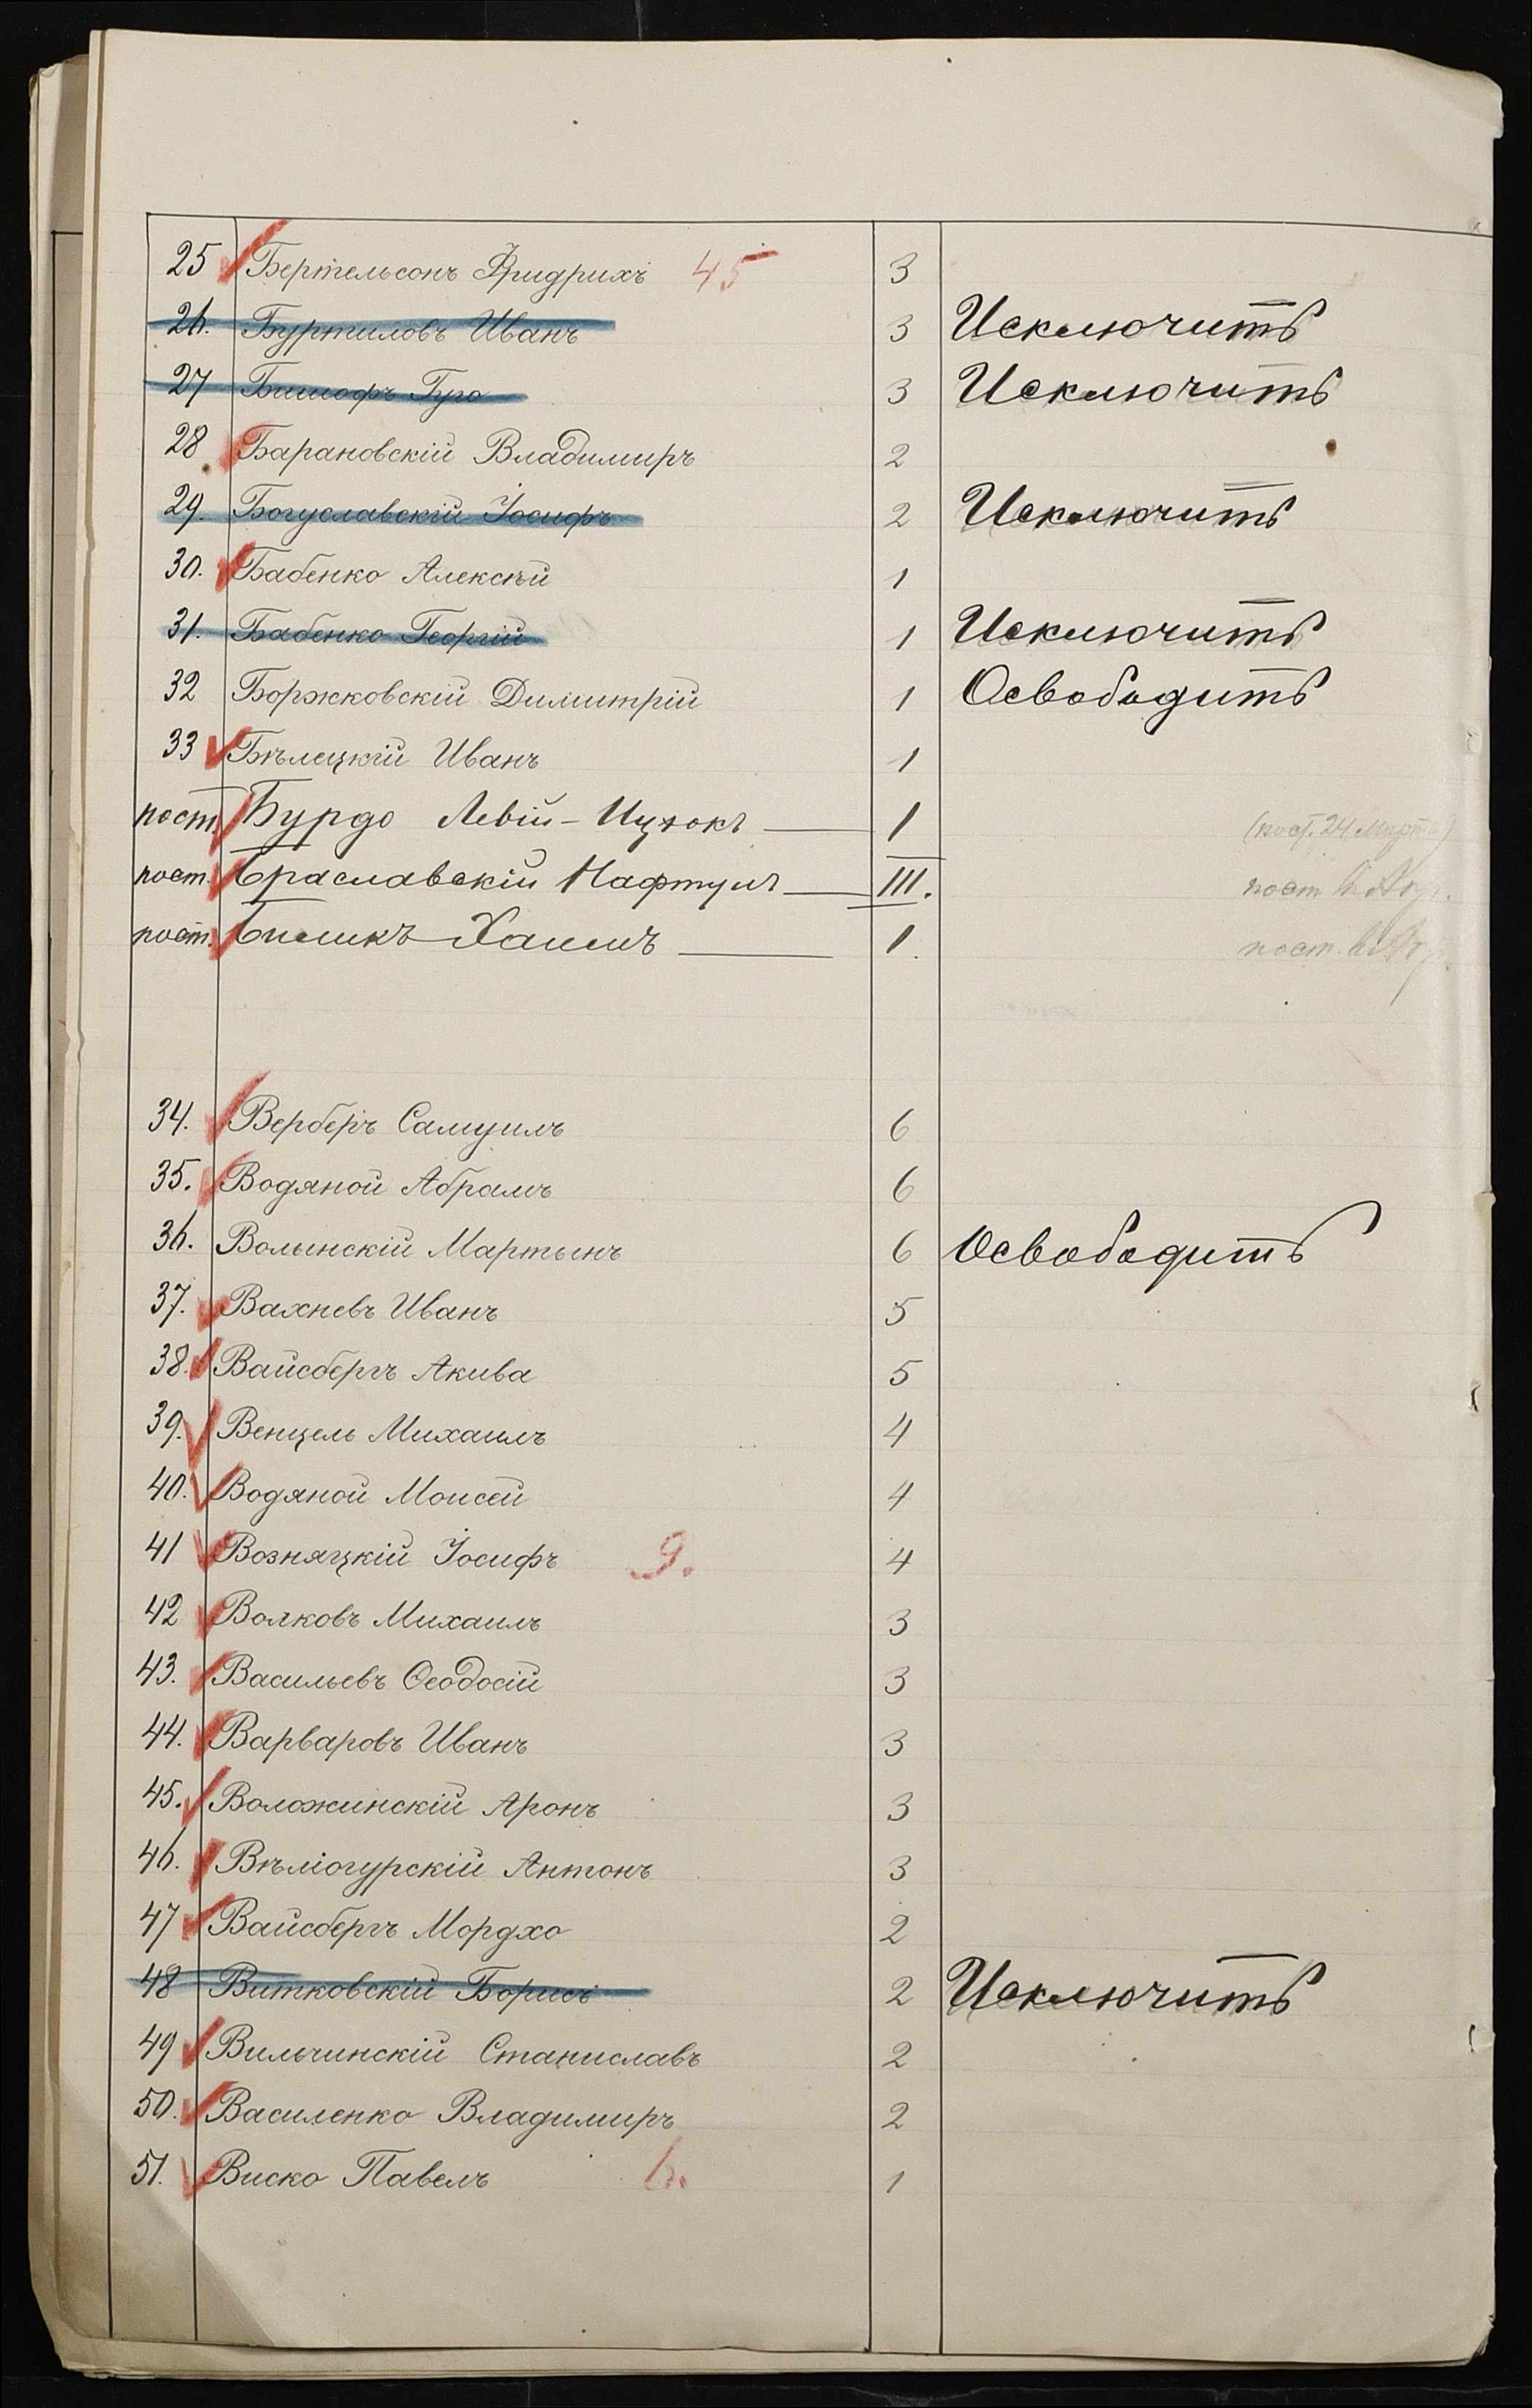 25 Бертельсонъ Фридрихъ 45 3
26. Буртиловъ Иванъ 3 Исключить
27 Бишофъ Гуго 3 Исключить
28 Барановскій Владимиръ 2
29. Богуславскій Іосифъ 2 Исключить
30. Бабенко Алексѣй 1
31. Бабенко Георгій 1 Исключить
32 Боржковскій Димитрій 1 Освободить
33 Бѣлецкій Иванъ 1
пост. Бурдо Левій-Ицхокъ 1 (пост. 24 Марта)
пост. Браславскій Нафтулъ III. пост. 6 Апр.
пост. Биликъ Хаимъ 1. пост. 6 Апр.
34. Верберъ Самуилъ 6
35. Водяной Абрамъ 6
36. Волынскій Мартынъ 6 Освободить
37. Вахневъ Иванъ 5
38. Вайсбергъ Акива 5
39. Венцель Михаилъ 4
40. Водяной Моисей 4
41 Возняцкій Іосифъ 9. 4
42 Волковъ Михаилъ 3
43. Васильевъ Ѳеодосій 3
44. Варваровъ Иванъ 3
45. Воложинскій Аронъ 3
46. Вѣліогурскій Антонъ 3
47 Вайсбергъ Мордхо 2
48 Витковскій Борисъ 2 Исключить
49 Вильчинскій Станиславъ 2
50. Василенко Владимиръ 2
51. Виско Павелъ 6. 1